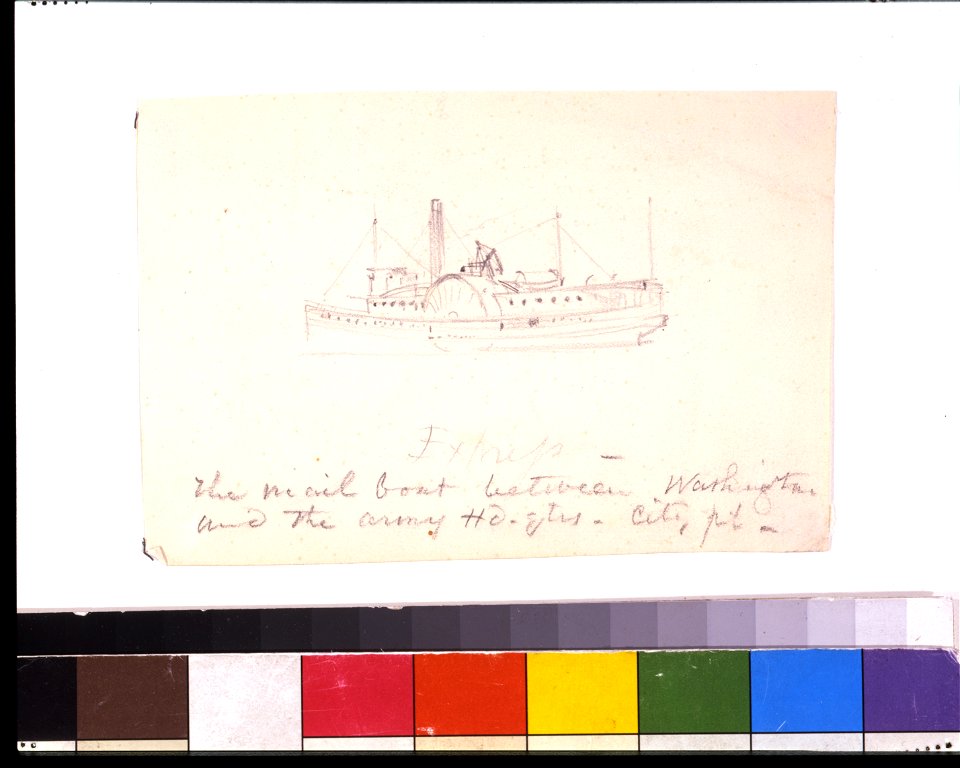 Express —
The mail boat between Washington
and the army Hd. qtrs. City pt —